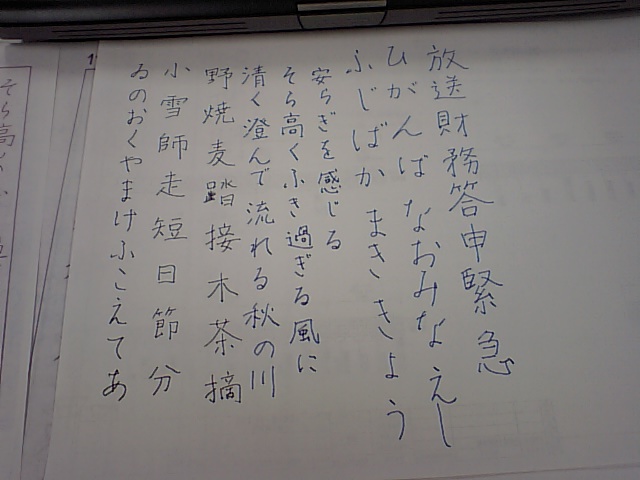 放送財務答申緊急
ひがんばなおみなえし
ふじばかまききょう
安らぎを感じる
そら高くふき過ぎる風に
清く澄んで流れる秋の川
野焼麦踏接木茶摘
小雪師走短日節分
ゐのおくやまけふこえてあ
そら高く